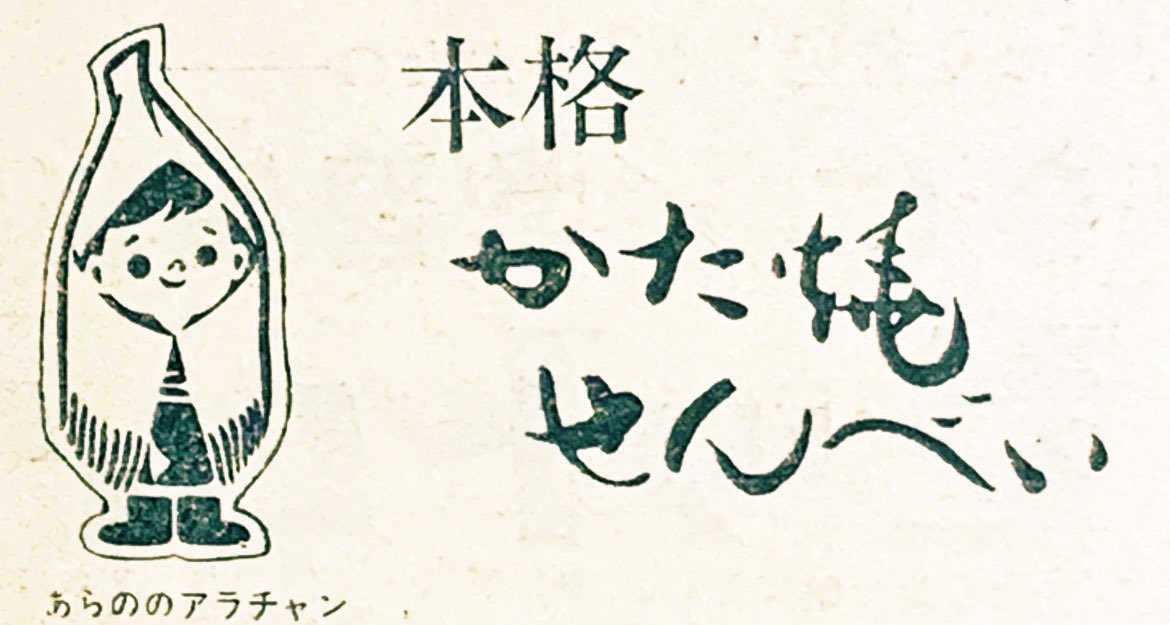 本格
かた焼
せんべい
あらののアラチャン